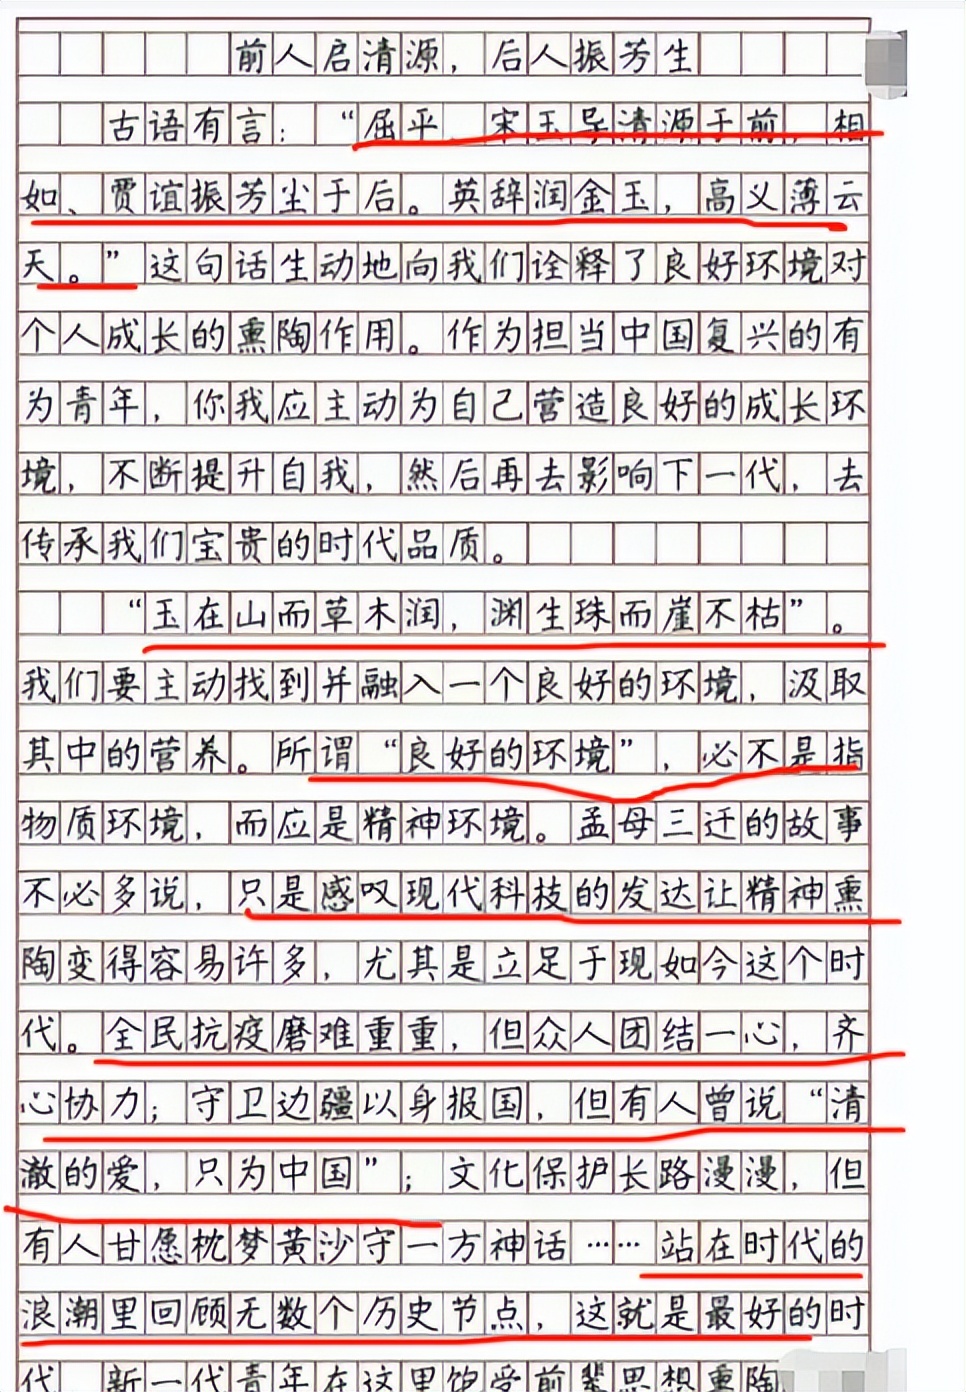 前人启清源，后人振芳生
古语有言：“屈平、宋玉导清源于前，相
如、贾谊振芳尘于后。英辞润金玉，高义薄云
天。”这句话生动地向我们诠释了良好环境对
个人成长的熏陶作用。作为担当中国复兴的有
为青年，你我应主动为自己营造良好的成长环
境，不断提升自我，然后再去影响下一代，去
传承我们宝贵的时代品质。
“玉在山而草木润，渊生珠而崖不枯”。
我们要主动找到并融入一个良好的环境，汲取
其中的营养。所谓“良好的环境”，必不是指
物质环境，而应是精神环境。孟母三迁的故事
不必多说，只是感叹现代科技的发达让精神熏
陶变得容易许多，尤其是立足于现如今这个时
代。全民抗疫磨难重重，但众人团结一心，齐
心协力；守卫边疆以身报国，但有人曾说“清
澈的爱，只为中国”；文化保护长路漫漫，但
有人甘愿枕梦黄沙守一方神话……站在时代的
浪潮里回顾无数个历史节点，这就是最好的时
代。新一代青年在这里饱受前辈思想熏陶